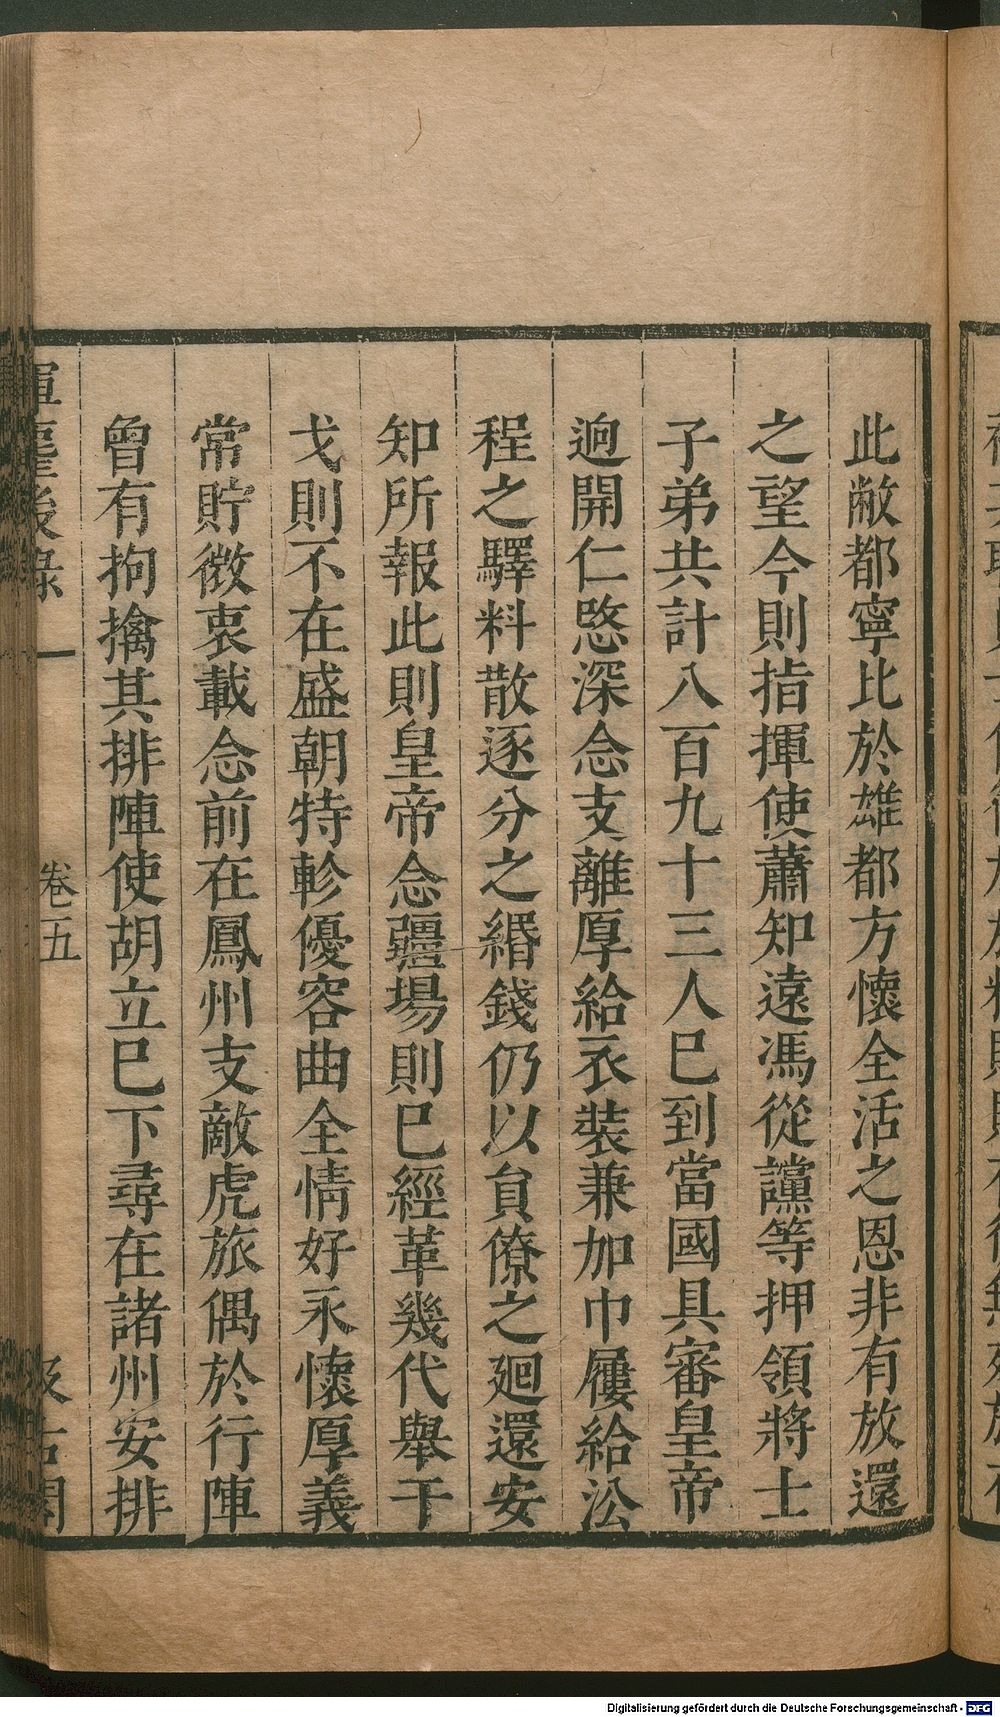 此敝都寧比於雄都方懷全活之恩非有放還
之望今則指揮使蕭知遠馮從讜等押領將士
子弟共計八百九十三人巳到當國具審皇帝
逈開仁愍深念支離厚給衣裝兼加巾屨給㳂
程之驛料散逐分之緡錢仍以負僚之廻還安
知所報此則皇帝念疆場則巳經革幾代舉干
戈則不在盛朝特軫優容曲全情好永懷厚義
常貯微衷載念前在鳳州支敵虎旅偶於行陣
曾有拘擒其排陣使胡立巳下尋在諸州安排
後錄 卷五
Digitalisierung gefördert durch die Deutsche Forschungsgemeinschaft - DFG